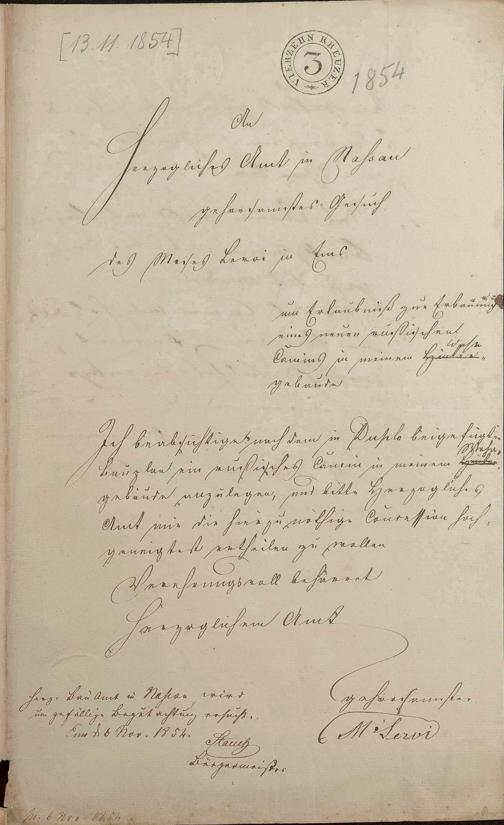 [13.11.1854]
VIERZEHN KREUZER
3
1854
An
Herzogliches Amt in Nassau
gehorsamstes Gesuch
des Moses Lervi in Ems
um Erlaubniß zur Erbauung
eines neuen russischen
Camins in meinem Wohn
gebäude
Ich beabsichtige nach dem in Duplo beigefügten
Bauplan ein russisches Camin in meinem Wohn-
gebäude anzulegen, und bitte Herzogliches
Amt mir die hierzu nöthige Concession hoch-
geneigtest ertheilen zu wollen
Verehrungsvoll beharret
Herzoglichem Amt
gehorsamster
M. Lervi
Herz. Bau Amt in Nassau wird
um gefällige Begutachtung ersucht.
Ems d. 6 Nov. 1854.
Bürgermeister
6 Nov. 1854